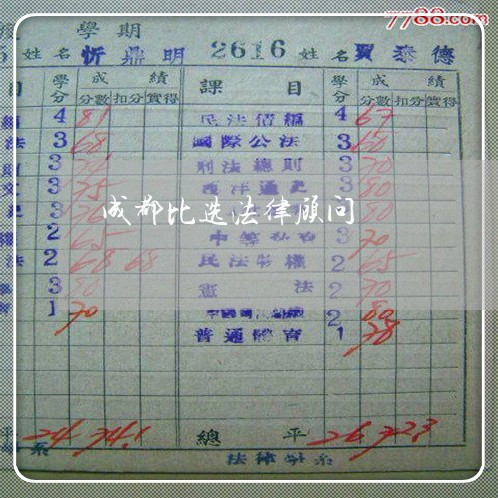 7788.com
學期
5 姓名 忻鼎明 2616 姓名 賈泰德
目 學分 成績 課目 學分 成績
分數 扣分 實得 分數 扣分 實得
4 81 民法債編 4 67
法 3 68 國際公法 3 60
3 刑法總則 3 70
文 3 75 西洋通史 3 80
3 3 80
成都比选法律顾问
權 2 65 3 70
法 2 68 68 民法物權 2 65
3 80 憲法 2 70
1 70 2 80
普通體育 1 78
平 24 74.1 總平 26 72.3
系 法律學系